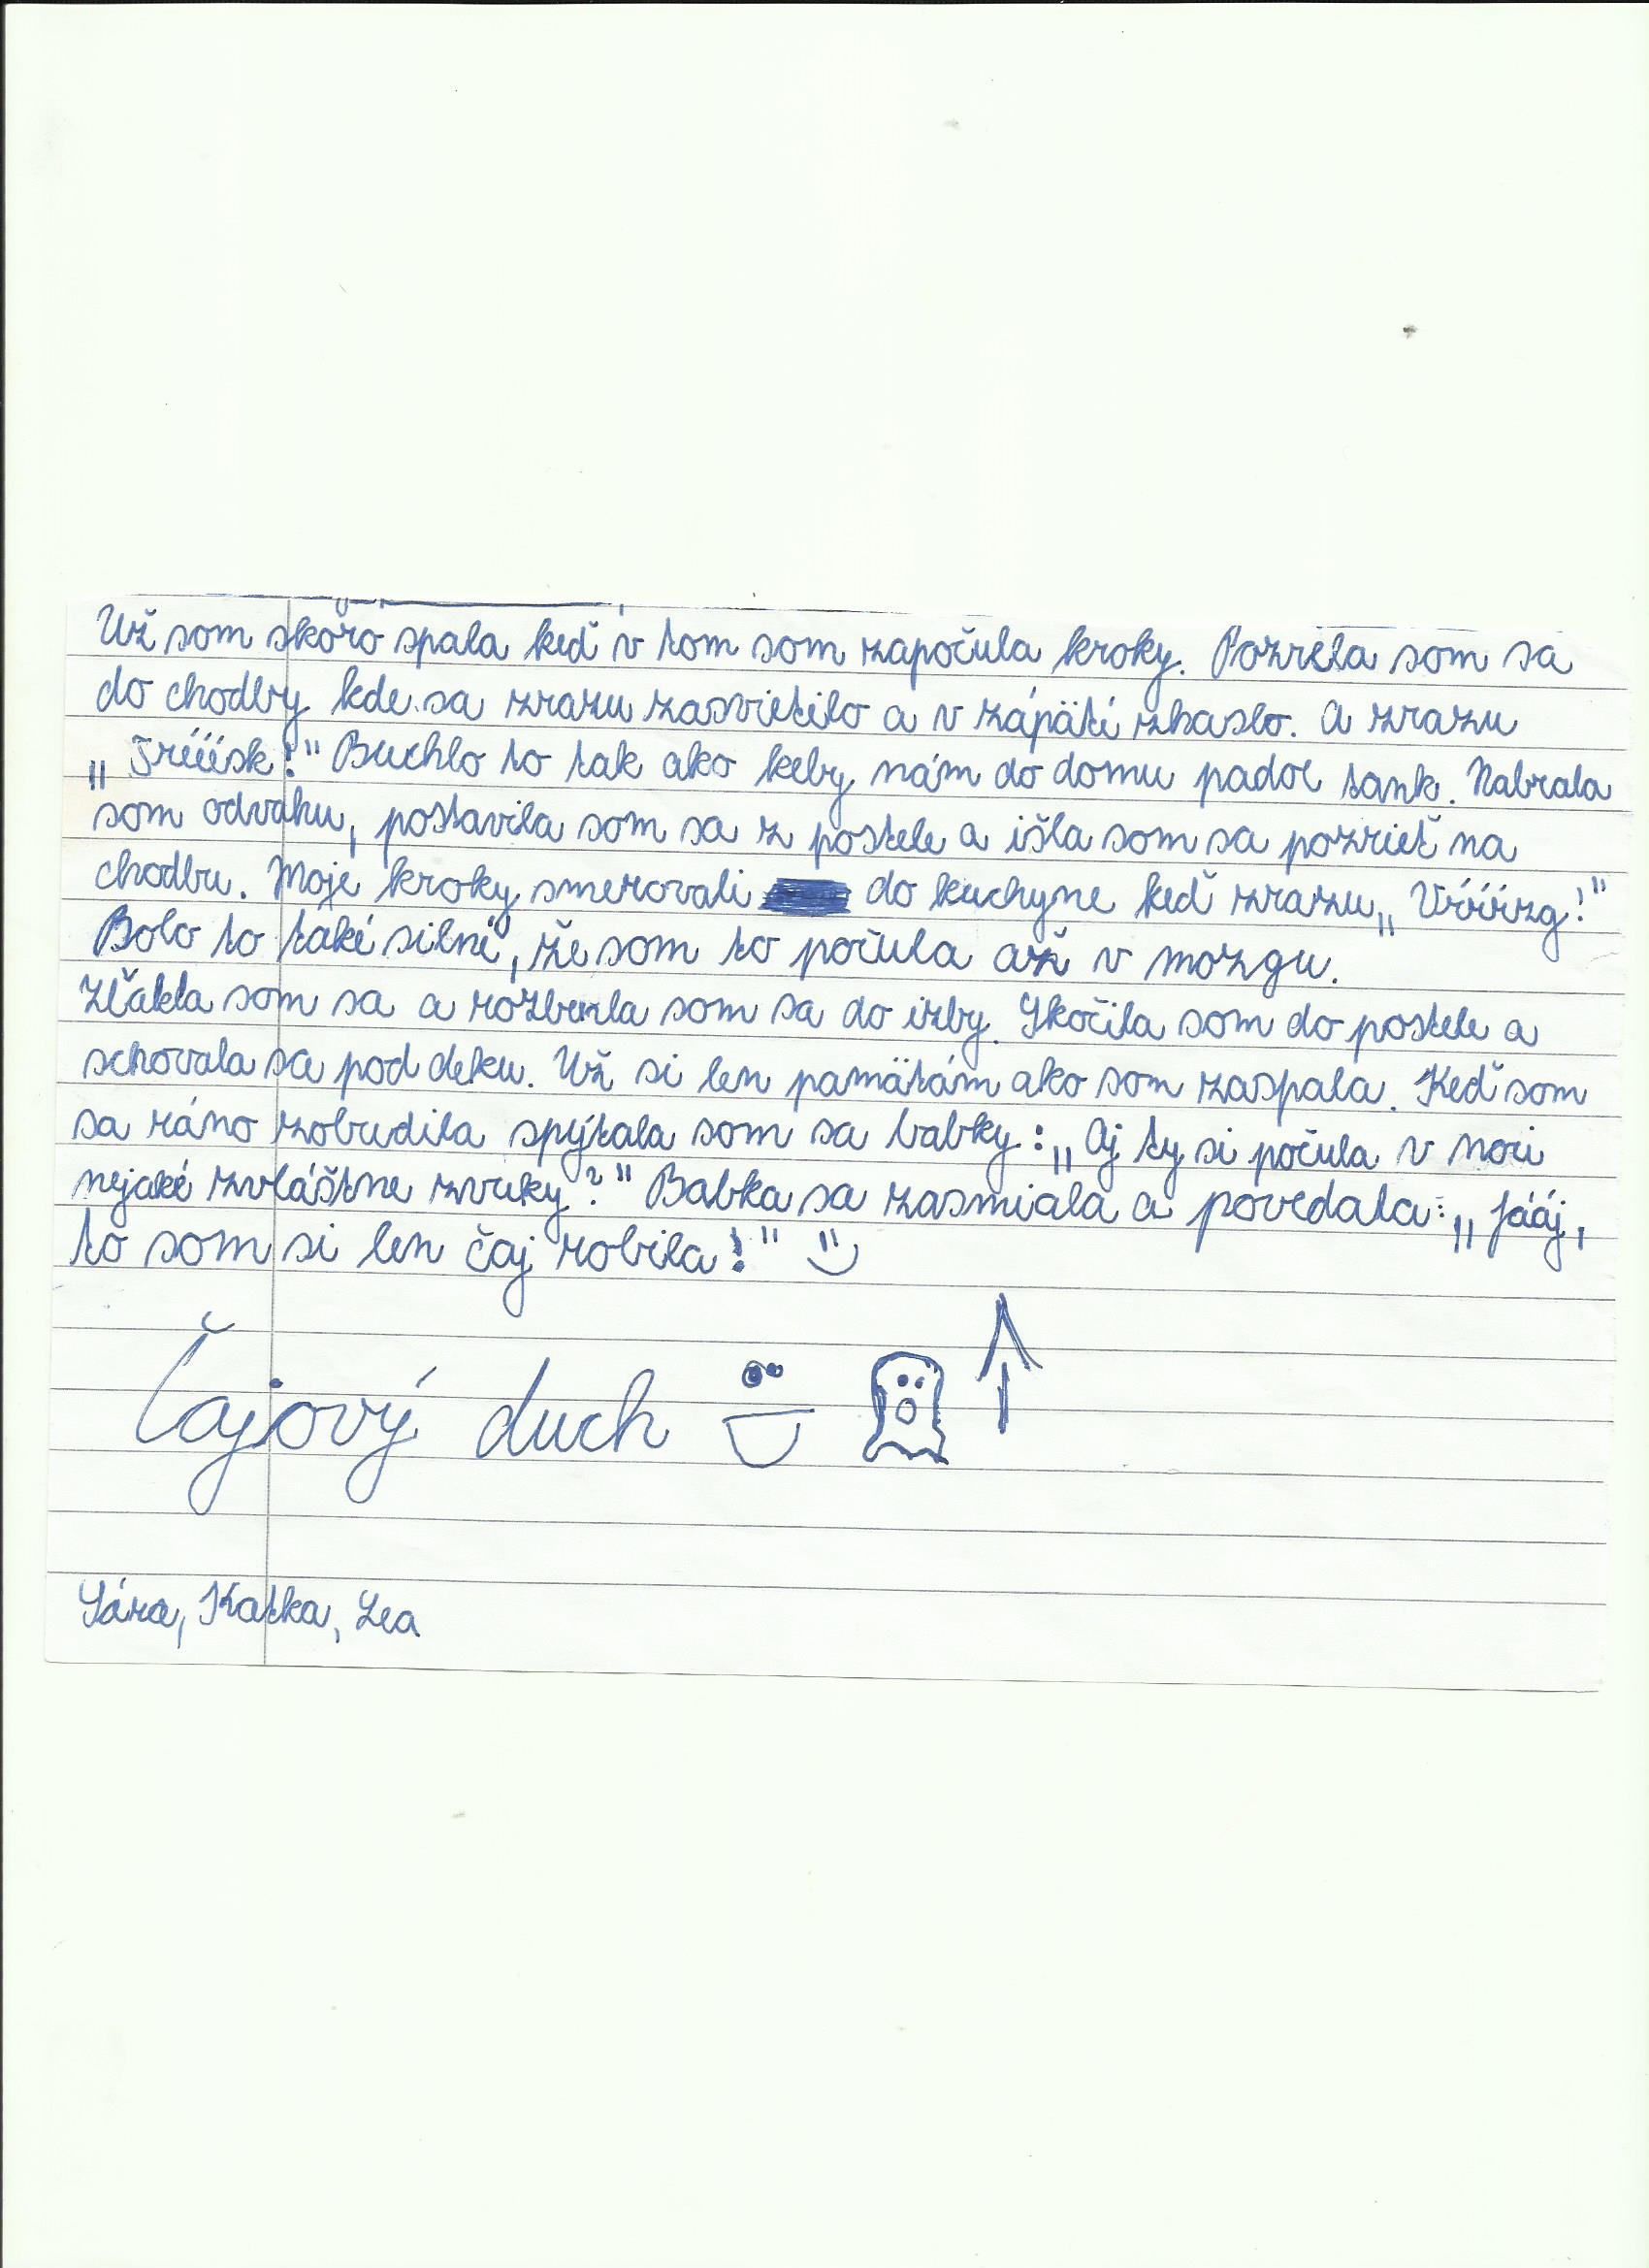 Už som skoro spala keď v tom som započula kroky. Pozrela som sa
do chodby kde sa zrazu zasvietilo a v zápätí zhaslo. A zrazu
„Trééésk!" Buchlo to tak ako keby nám do domu padol tank. Nabrala
som odvahu, postavila som sa z postele a išla som sa pozrieť na
chodbu. Moje kroky smerovali do kuchyne keď zrazu „Vŕŕŕzg!"
Bolo to také silné, že som to počula až v mozgu.
Zľakla som sa a rozbehla som sa do izby. Skočila som do postele a
schovala sa pod deku. Už si len pamätám ako som zaspala. Keď som
sa ráno zobudila spýtala som sa babky: „Aj ty si počula v noci
nejaké zvláštne zvuky?" Babka sa zasmiala a povedala: „Jááj,
to som si len čaj robila!"
Čajový duch
Sára, Katka, Lea